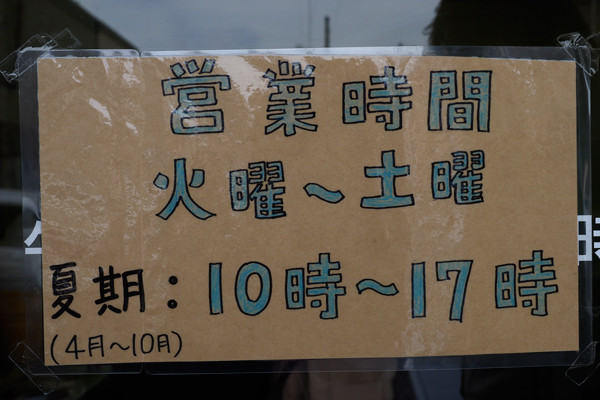 営業時間
火曜～土曜
夏期：10時～17時
(4月～10月)
時